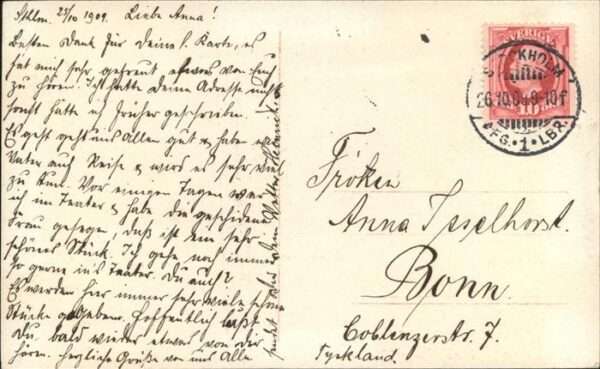 Sthlm. 25/10 1909. Liebe Anna!
Besten Dank für Deine l. Karte, es
hat mich sehr gefreut etwas von Euch
zu hören. Ich hatte deine Adresse nicht
sonst hätte ich früher geschrieben.
Es geht uns Allen gut & habe
Vater auch Reise & wird es sehr viel
zu tun. Vor einigen Tagen war
ich im Teater & habe die geschiedene
Frau gesehen, daß ist ein sehr
schönes Stück. Ich gehe noch immer
so gerne in's Teater. Du auch?
Es werden hier immer sehr viele schöne
Stücke gegeben. Hoffentlich läßt
Du bald wieder etwas von Dir
hören. Herzliche Grüße von uns Alle
sendet Dir
SVERIGE
STOCKHOLM
26.10.09 9-10 f
AFG. 1 LBR.
10
Fröken
Anna Isselhorst.
Bonn.
Coblenzerstr. 7.
Tyskland.